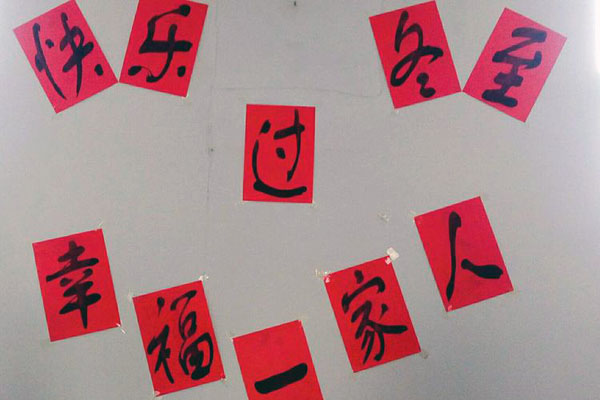 快乐 冬至
过
幸福一家人